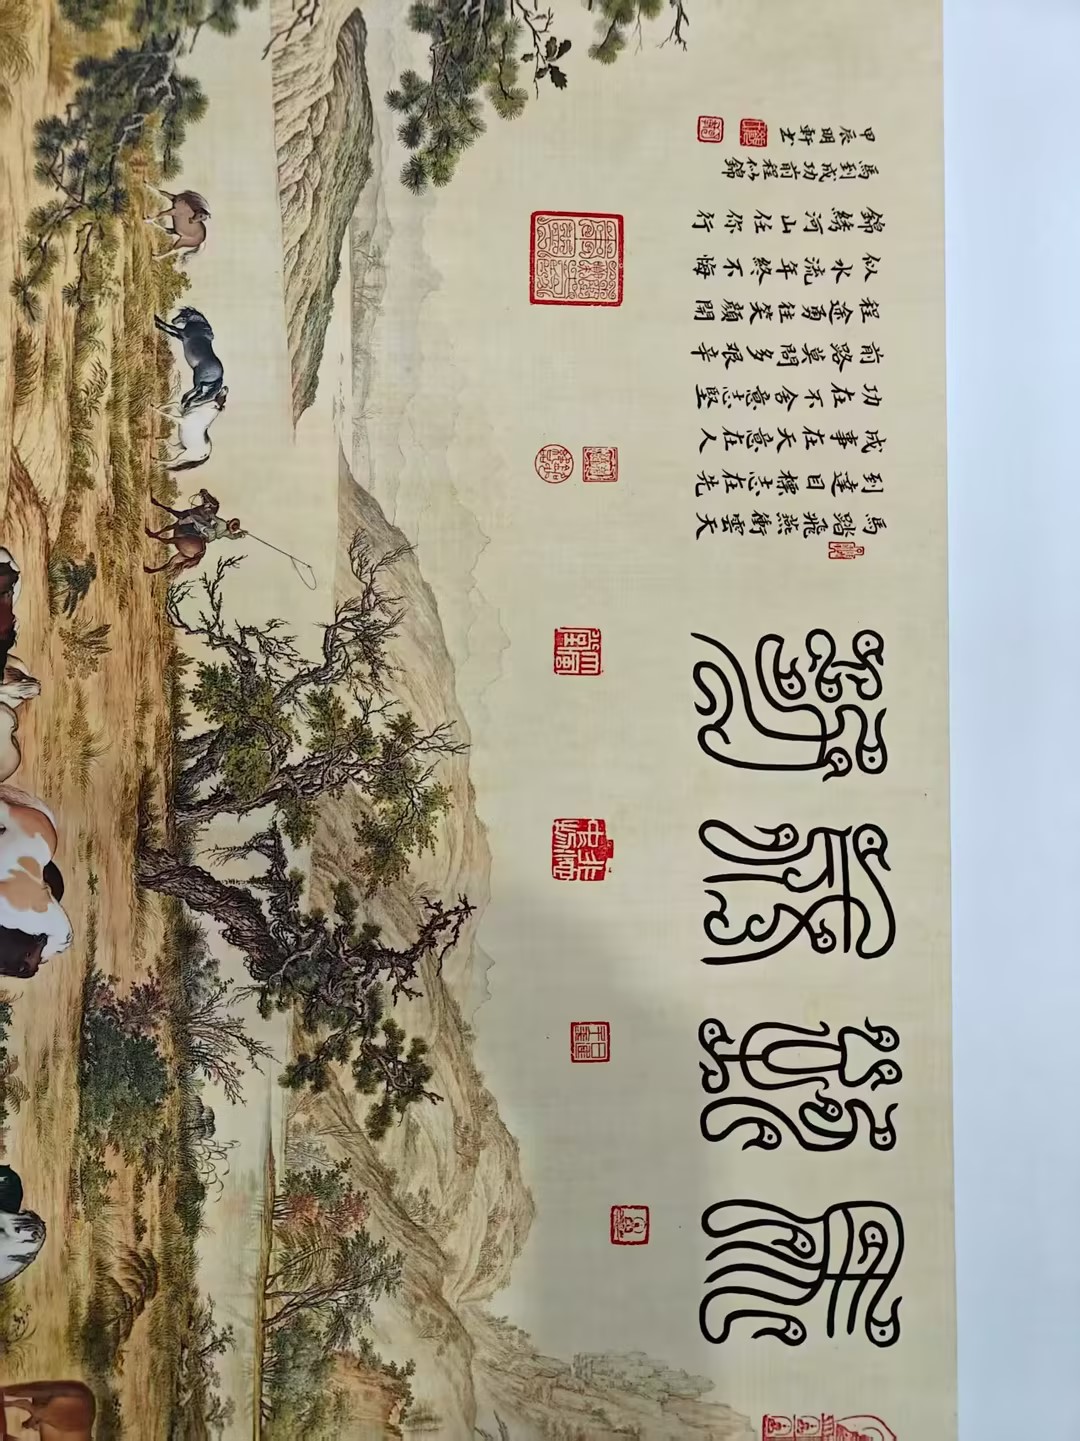 馬到成功
馬踏飛燕衝雲天
到達目標志在先
成事在天意在人
功在不舍意志堅
前路莫問多艱辛
程途勇往笑顏開
似水流年終不悔
錦繡河山任你行
馬到成功前程似錦
甲辰明軒書